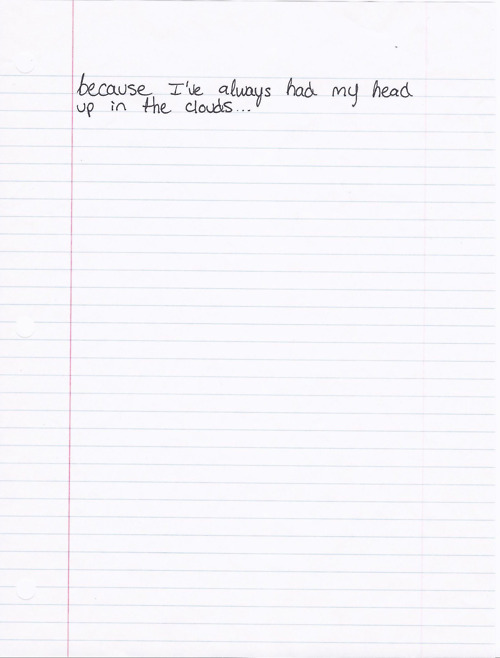 because I've always had my head
up in the clouds...